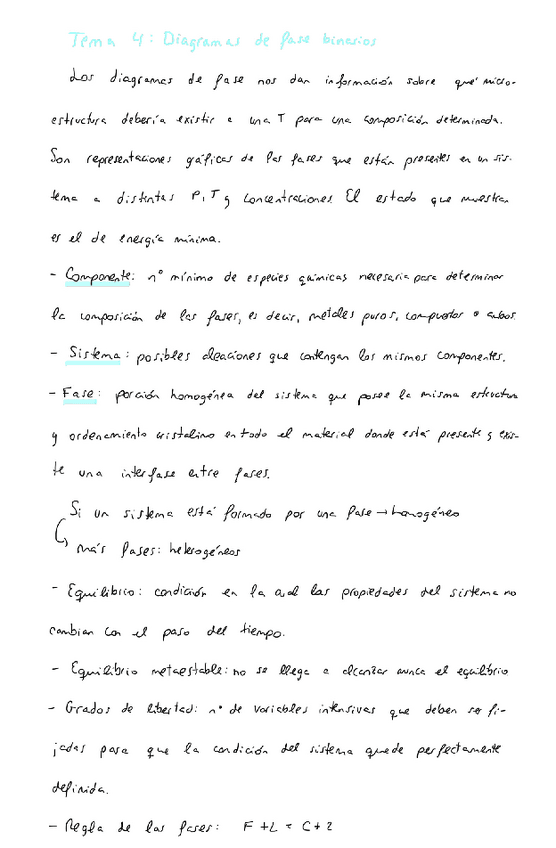 Tema 4: Diagramas de fase binarios
Los diagramas de fase nos dan información sobre qué micro-
estructura debería existir a una T para una composición determinada.
Son representaciones gráficas de las fases que están presentes en un sis-
tema a distintas P, T y concentraciones. El estado que muestran
es el de energía mínima.
- Componente: nº mínimo de especies químicas necesaria para determinar
la composición de las fases, es decir, metales puros, compuestos o ambos.
- Sistema: posibles aleaciones que contengan los mismos componentes.
- Fase: porción homogénea del sistema que posee la misma estructura
y ordenamiento cristalino en todo el material donde está presente y exis-
te una interfase entre fases.
Si un sistema está formado por una fase → homogéneo
más fases: heterogéneos
- Equilibrio: condición en la cual las propiedades del sistema no
cambian con el paso del tiempo.
- Equilibrio metaestable: no se llega a alcanzar nunca el equilibrio
- Grados de libertad: nº de variables intensivas que deben ser fi-
jadas para que la condición del sistema quede perfectamente
definida.
- Regla de las fases: F + L = C + 2